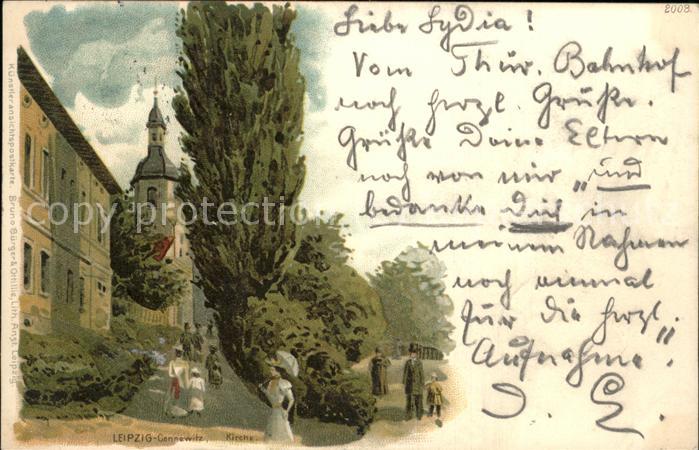 2008.
Liebe Lydia!
Vom Thür. Bahnhof
noch herzl. Grüße.
Grüße Deine Eltern
noch von mir „und
bedanke Dich in
meinem Namen
noch einmal
für die herzl.
Aufnahme."
LEIPZIG-Connewitz, Kirche.
Künstleransichtspostkarte. Bruno Bürger & Ottillie, Lith. Anst. Leipzig.
copyright protection